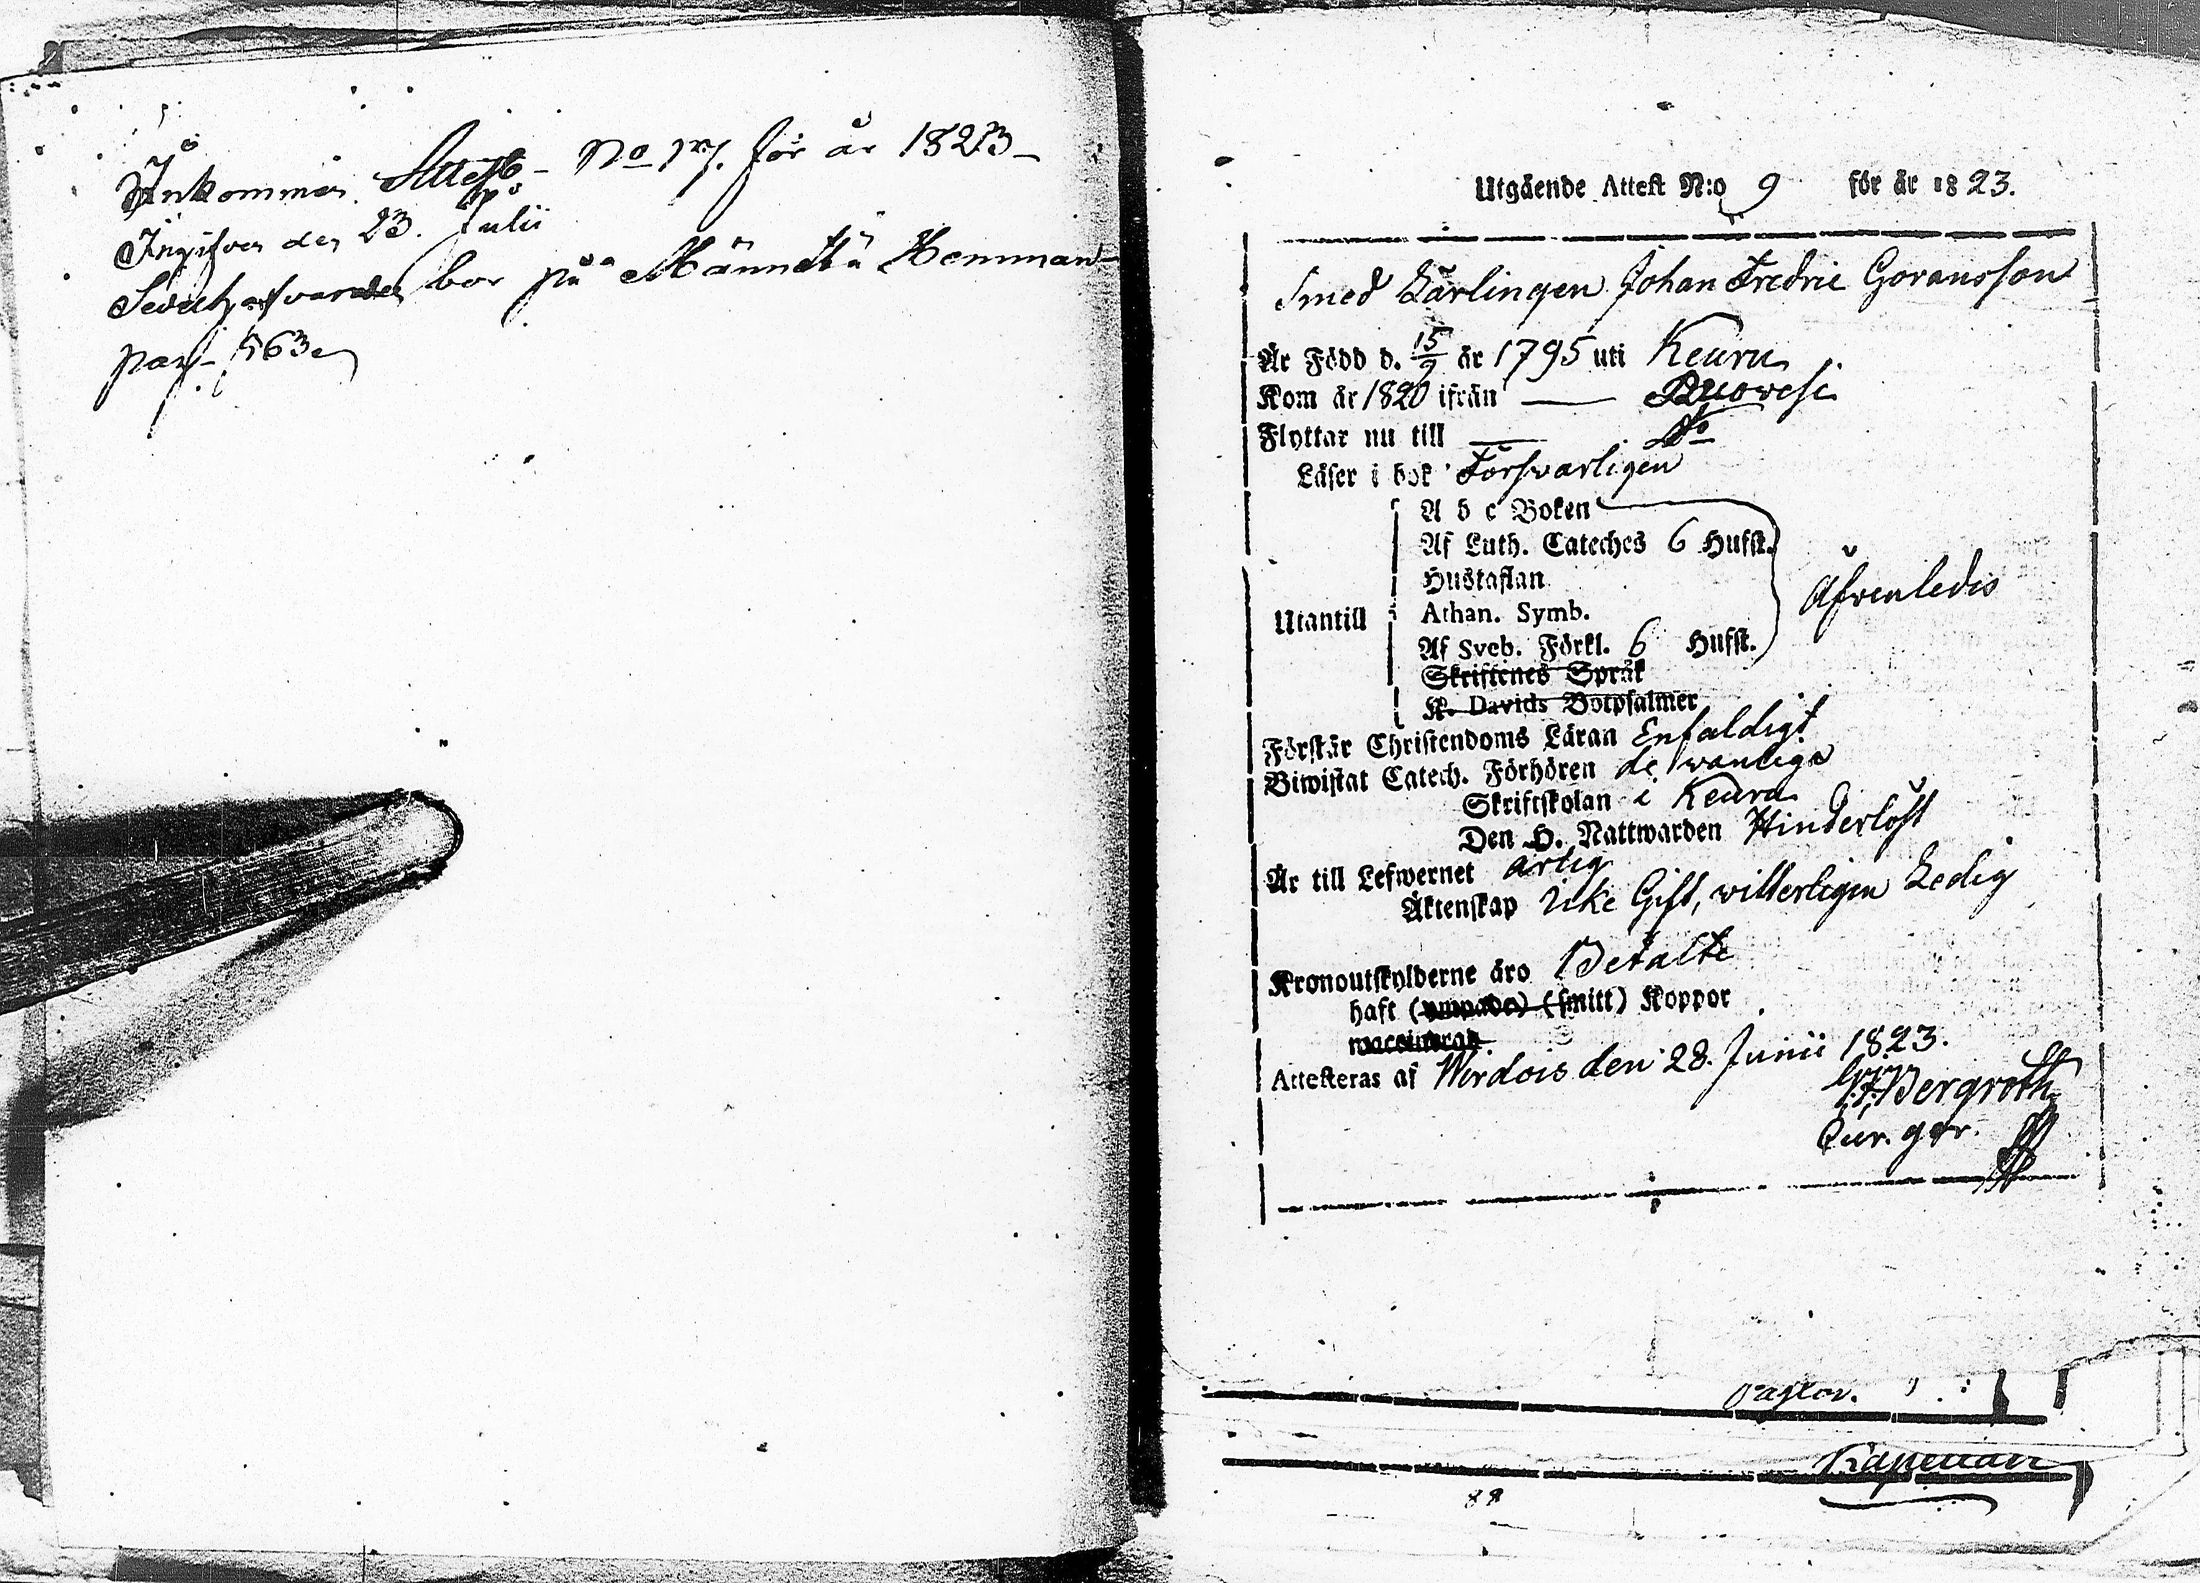 Inkommen Attest No 17. för år 1823
Ingifven den 23. Julii
bor på Männttä Hemman
pag. 563
Utgående Attest N:o 9 för år 1823.
Smed Lärlingen Johan Fredric Göransson
Är Född d. 15/9 år 1795 uti Keuru
Kom år 1820 ifrån — Ruowesi
Flyttar nu till — Do
Läser i bok Försvarligen
A b c Boken
Af Luth. Cateches 6 Hufst.
Hustaflan
Äfvenledes
Utantill Athan. Symb.
Af Sveb. Förkl. 6 Hufst.
Skriftenes Språk
K. Davids Botpsalmer
Förstår Christendoms Läran Enfaldigt
Biwistat Catech. Förhören de wanliga
Skriftskolan i Keuru
Den H. Nattwarden Hinderlöst
Är till Lefwernet ärlig
Äktenskap Icke Gift, witterligen Ledig
Kronoutskylderne äro Betalte
haft (ympade) (smitt) Koppor
waccinerad
Attesteras af Wirdois den 28. Junii 1823.
Bergroth
Cur. ger.
Pastor.
Kapellan
88